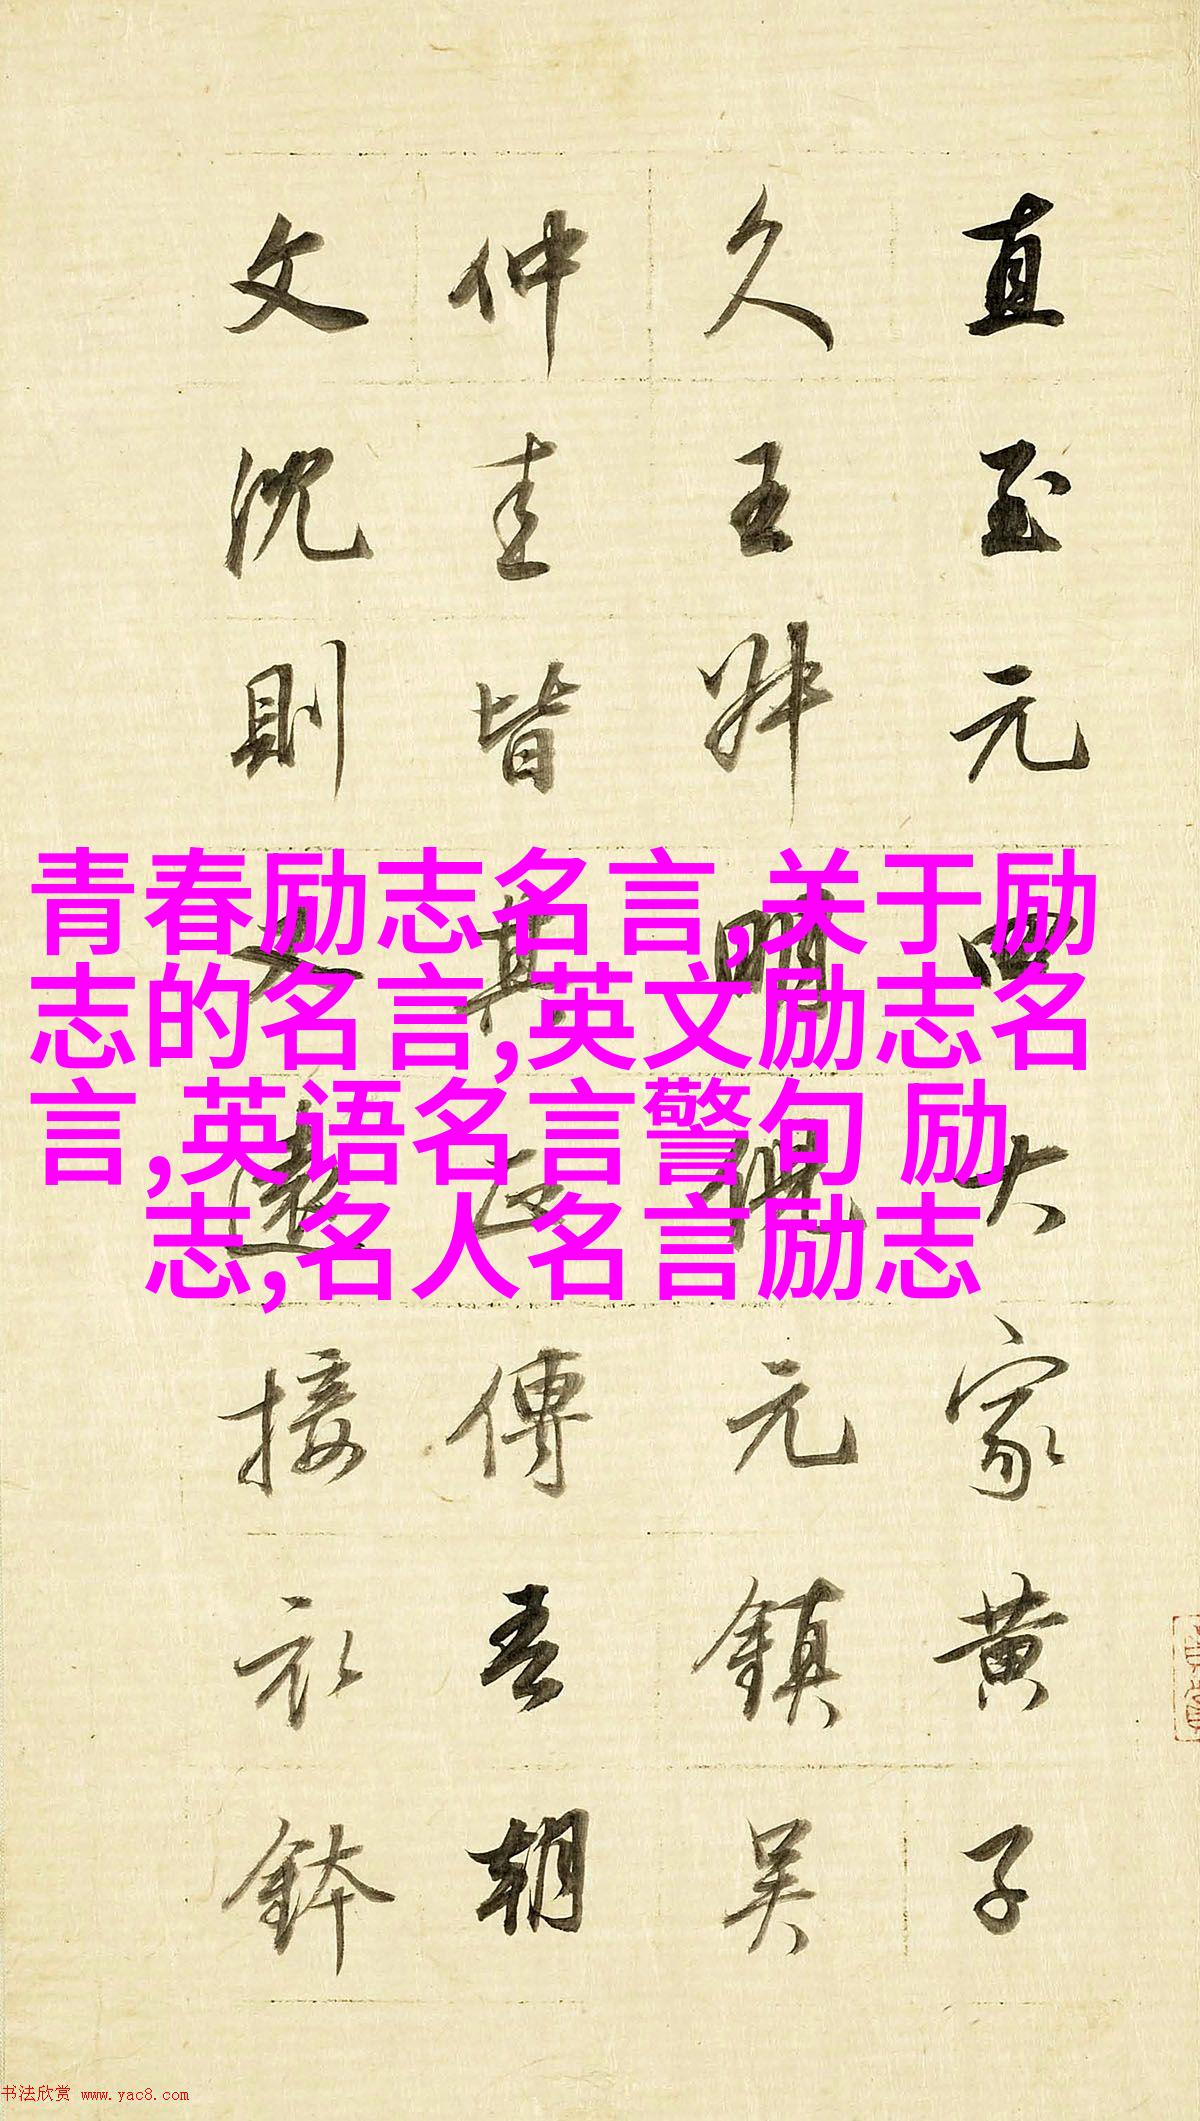 直至元四大家黄子
久王叔明倪元鎮吴
仲圭皆其正傳吾朝
文沈則又遠接衣鉢
青春励志名言,关于励
志的名言,英文励志名
言,英语名言警句 励
志,名人名言励志
书法欣赏 www.yac8.com